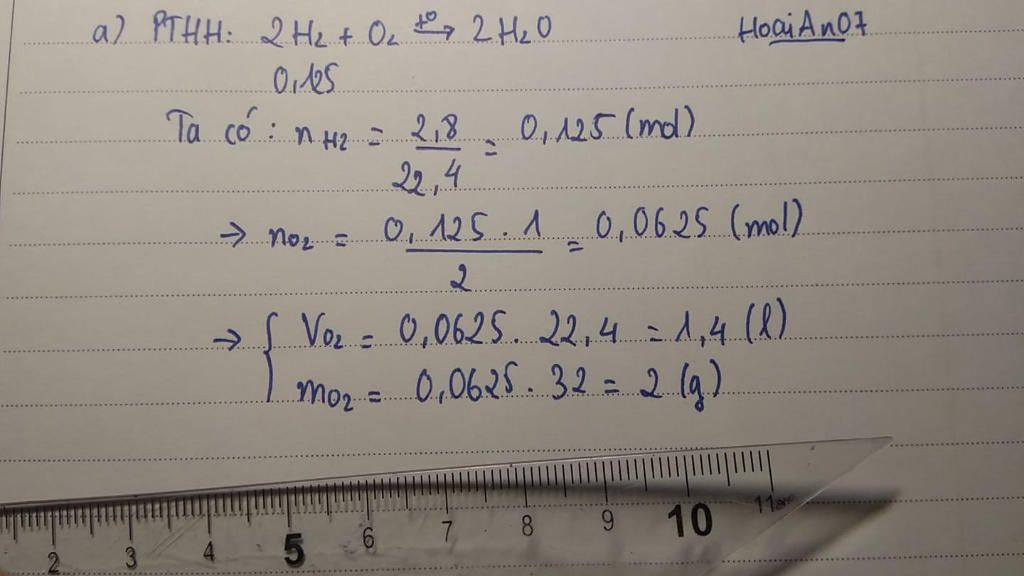 a) PTHH: 2H₂ + O₂ →^{t°} 2H₂O HoaiAn07
0,125
Ta có: nH₂ = 2,8/22,4 = 0,125 (mol)
→ nO₂ = 0,125 . 1/2 = 0,0625 (mol)
→ { VO₂ = 0,0625 . 22,4 = 1,4 (l)
mO₂ = 0,0625 . 32 = 2 (g)
2 3 4 5 6 7 8 9 10 11